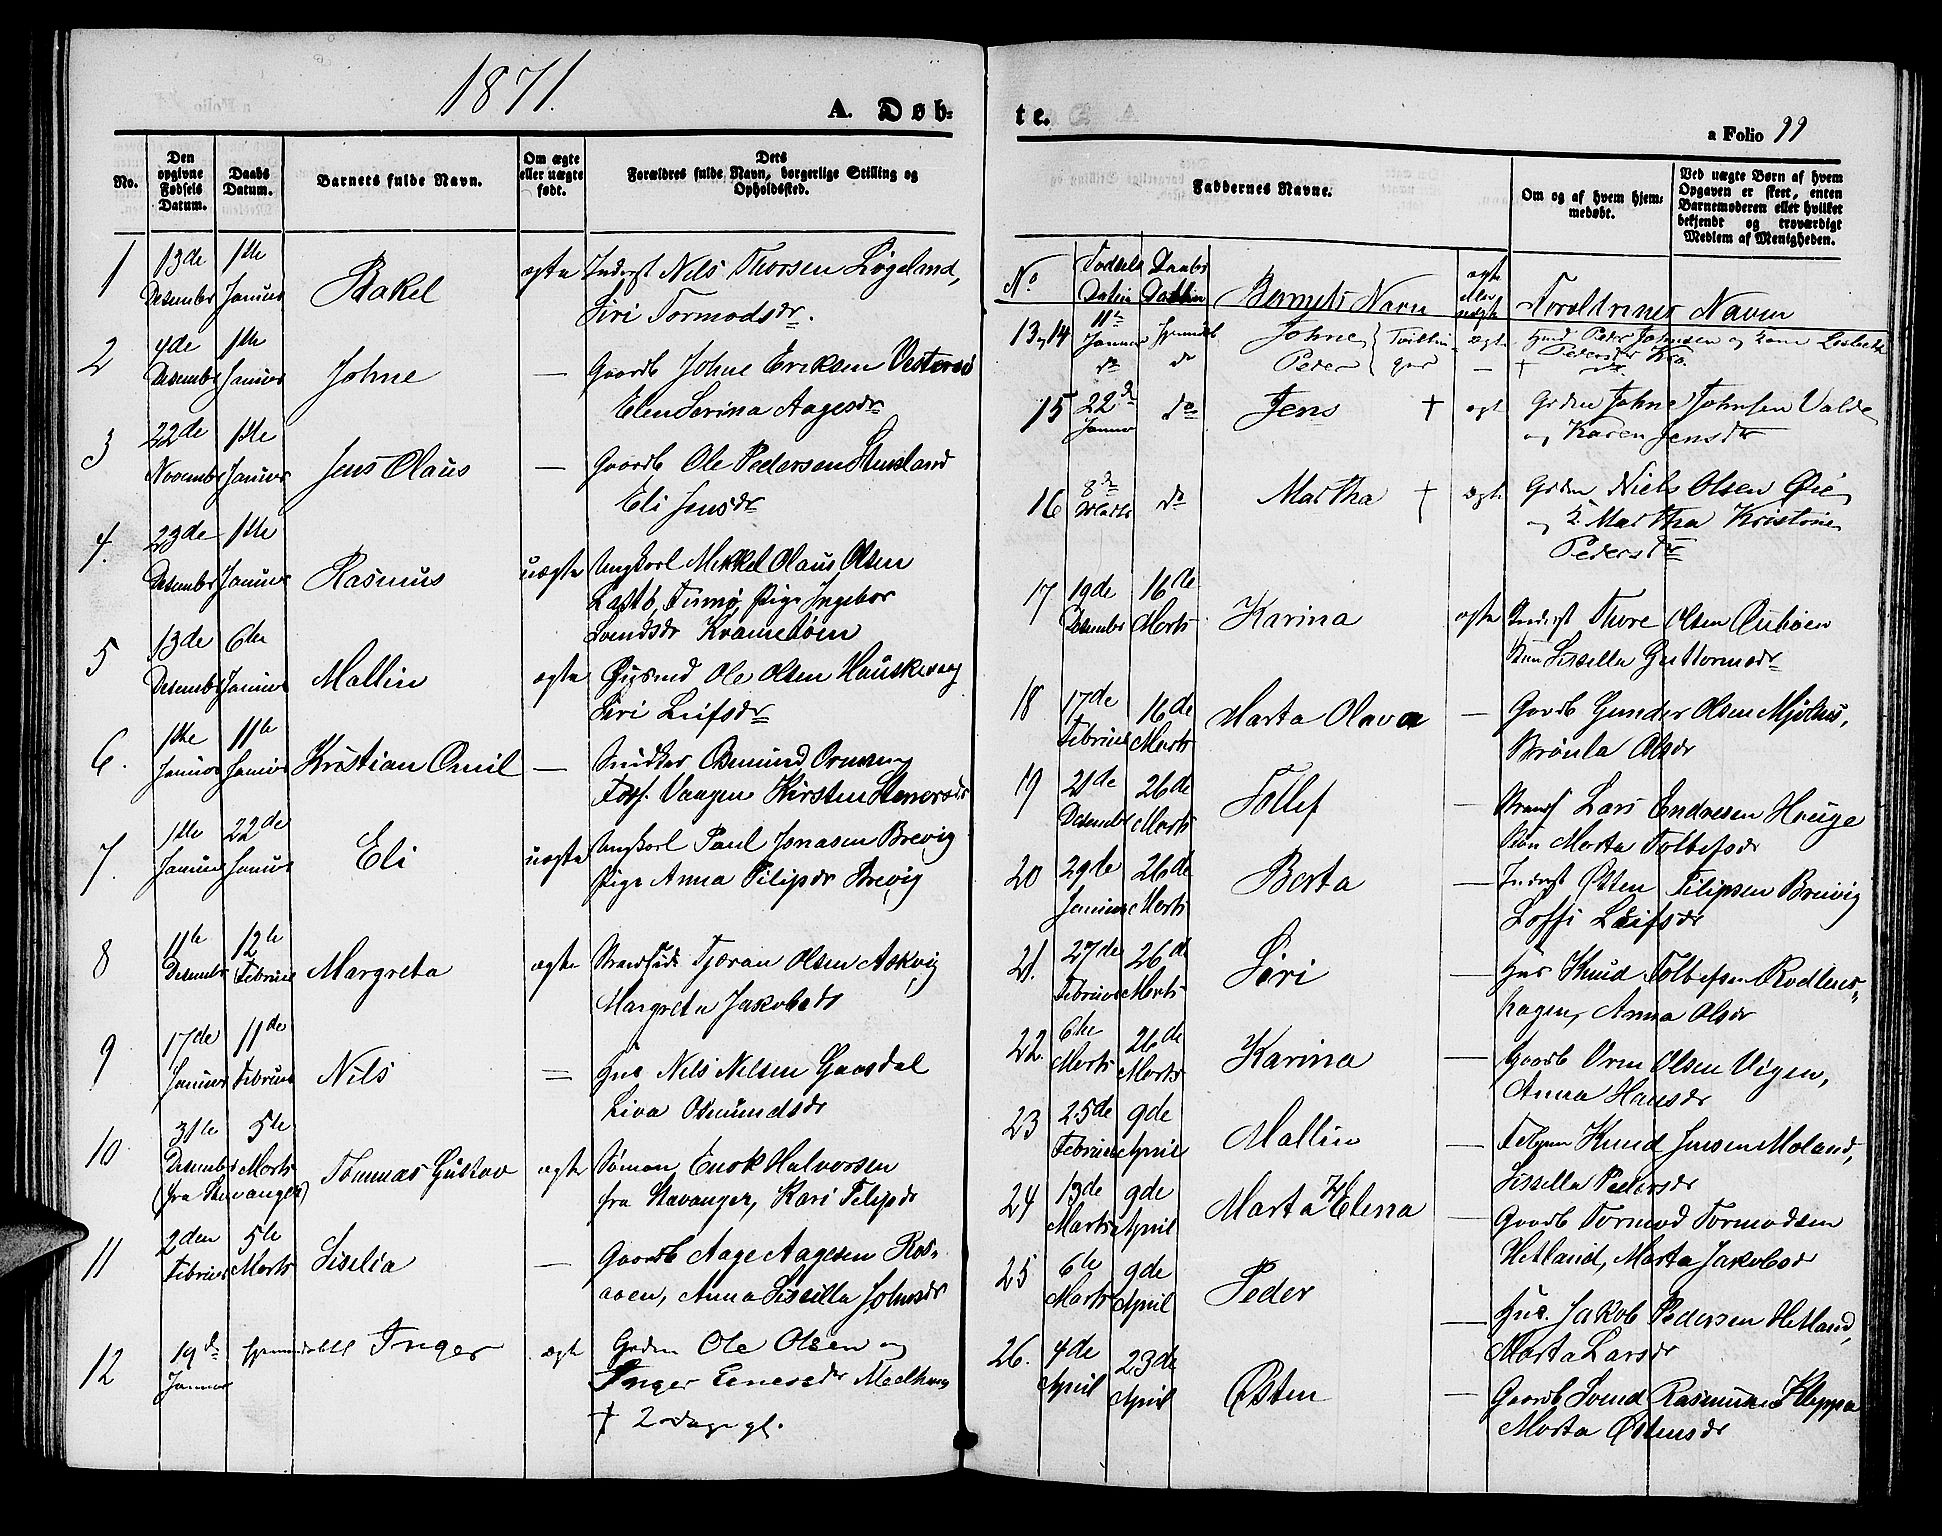 1871.
A. Døb-
No.
Den opgivne Fødsels Datum.
Daabs Datum.
Barnets fulde Navn.
Om ægte eller uægte født.
Dets Forældres fulde Navn, borgerlige Stilling og Opholdssted.
1 13de Desember 1ste Januar Rakel ægte Inderst Nils Thorsen Løgeland,
Siri Tormodsdr.
2 4de Desember 1ste Januar Johne — Gaardb Johne Eriksen Vestersø
Elen Serina Aagesdr
3 22de November 1ste Januar Jens Olaus — Gaardb Ole Pedersen Stensland
Eli Jensdr
4. 23de Desember 1ste Januar Rasmus uægte Ungkarl Mikkel Olaus Olsen
Pige Ingebor
Svendsdr
5 13de Desember 6te Januar Mallin ægte Ole Olsen Hauskevaag
Siri Leifsdr
6. 1ste Januar 11te Januar Kristian Omil — Snidker Osmund
Vaagen Kirsten
7. 1ste Januar 22de Januar Eli uægte Ungkarl Paul Jonasen Brevig
Pige Anna Filipdr Brevig
8 11te Desember 12te Februar Margreta ægte Strandsid Tjøran Olsen Askvig
Margreta Jakobsdr
9 17de Januar 11de Februar Nils — Hus Nils Nilsen Gaasdal
Liva Osmundsdr
10 31te Desember (fra Stavanger) 5te Marts Tommas Gustav ægte Søman Enok Halvorsen
fra Stavanger, Kari Filipdr
11 2den Februar 5te Marts Siselia — Gaardb Aage Aagesen Ros-
aaen, Anna Sissilla Johnsdr
12 19de Januar hjemmedøbt Inger ægte Grdm Ole Olsen og
Inger Enersdr
† 2 dage gl.
te.
a Folio 99
Faddernes Navne.
Om og af hvem hjem-
medøbt.
Ved uægte Børn af hvem
Opgaven er skeet, enten
Barnemoderen eller hvilket
bekjendt og troværdigt
Medlem af Menigheden.
No Fødsels Datum Daabs Datum Barnets Navn ægte eller uægte Foreldrenes Navne
13, 14 11te Januar hjemmedøb Johne Tvillin- ægte Husmd Peder Johnsen og Kone Lisbeth
do do Peder ger — Pedersdr
15 22de Januar do Jens † ægte Grdm Johne Johnsen Valde
og Karen Jensdr
16 8de Marts do Martha † ægte Grdm Niels Olsen Øie
og K. Martha Kristine
Pedersdr
17 19de Desember 16de Marts Karina ægte Inderst Thore Olsen
Kone Sissilla Guttormsdr
18 17de Februar 16de Marts Marta Olava — Gaardb Gunder Olsen Mjølhus,
Brønla Olsdr
19 21de Desember 26de Marts Tollef — Strands Lars Endresen Hauge
Kon Marta Tollefsdr
20 29de Januar 26de Marts Berta — Inderst Østen Filipsen Breivig
Soffi Leifsdr
21. 27de Februar 26de Marts Siri — Hus Knud Tollefsen
hagen, Anna Olsdr
22. 6te Marts 26de Marts Karina — Gaardb Orm Olsen Vigen,
Anna Hansdr
23 25de Februar 9de April Mallin — Knud Jensen Moland,
Sissilla Pedersdr
24 13de Marts 9de April Marta Helena — Gaardb Tormod Tormodsen
Hetland, Marta Jakobsdr
25 6te Marts 9de April Peder — Hus. Jakob Pedersen Hetland,
Marta Larsdr
26. 4de April 23de April Østen — Gaardb Svend Rasmussen Kleppa
Marta Østensdr